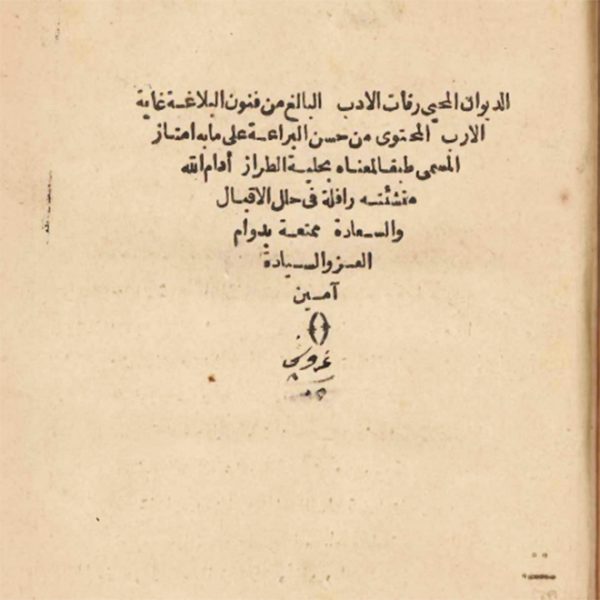 الديوان المحيي رفات الادب البالغ من فنون البلاغة غاية
الارب المحتوى من حسن البراعة على ما به امتاز
المسمى طبقا لمعناه بحلية الطراز أدام الله
منشئته رافلة في حلل الاقبال
والسعادة ممتعة بدوام
العز والسيادة
آمين